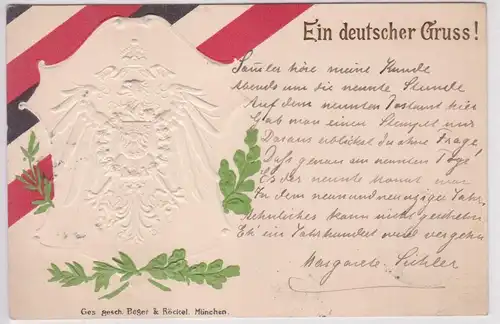 Ein deutscher Gruss!
Samler höre meine Kunde
Abends um die neunte Stunde
Auf dem neunten Postamt hier
Gab man einen Stempel mir
Daraus erblickst du ohne Frage,
Daß genau am neunten Tage
Es der neunte Monat war
In dem neunundneunziger Jahr,
Aehnliches kann nicht geschehen
Eh' ein Jahrhundert wird vergehn
Margarete
Ges. gesch. Beger & Röckel. München.